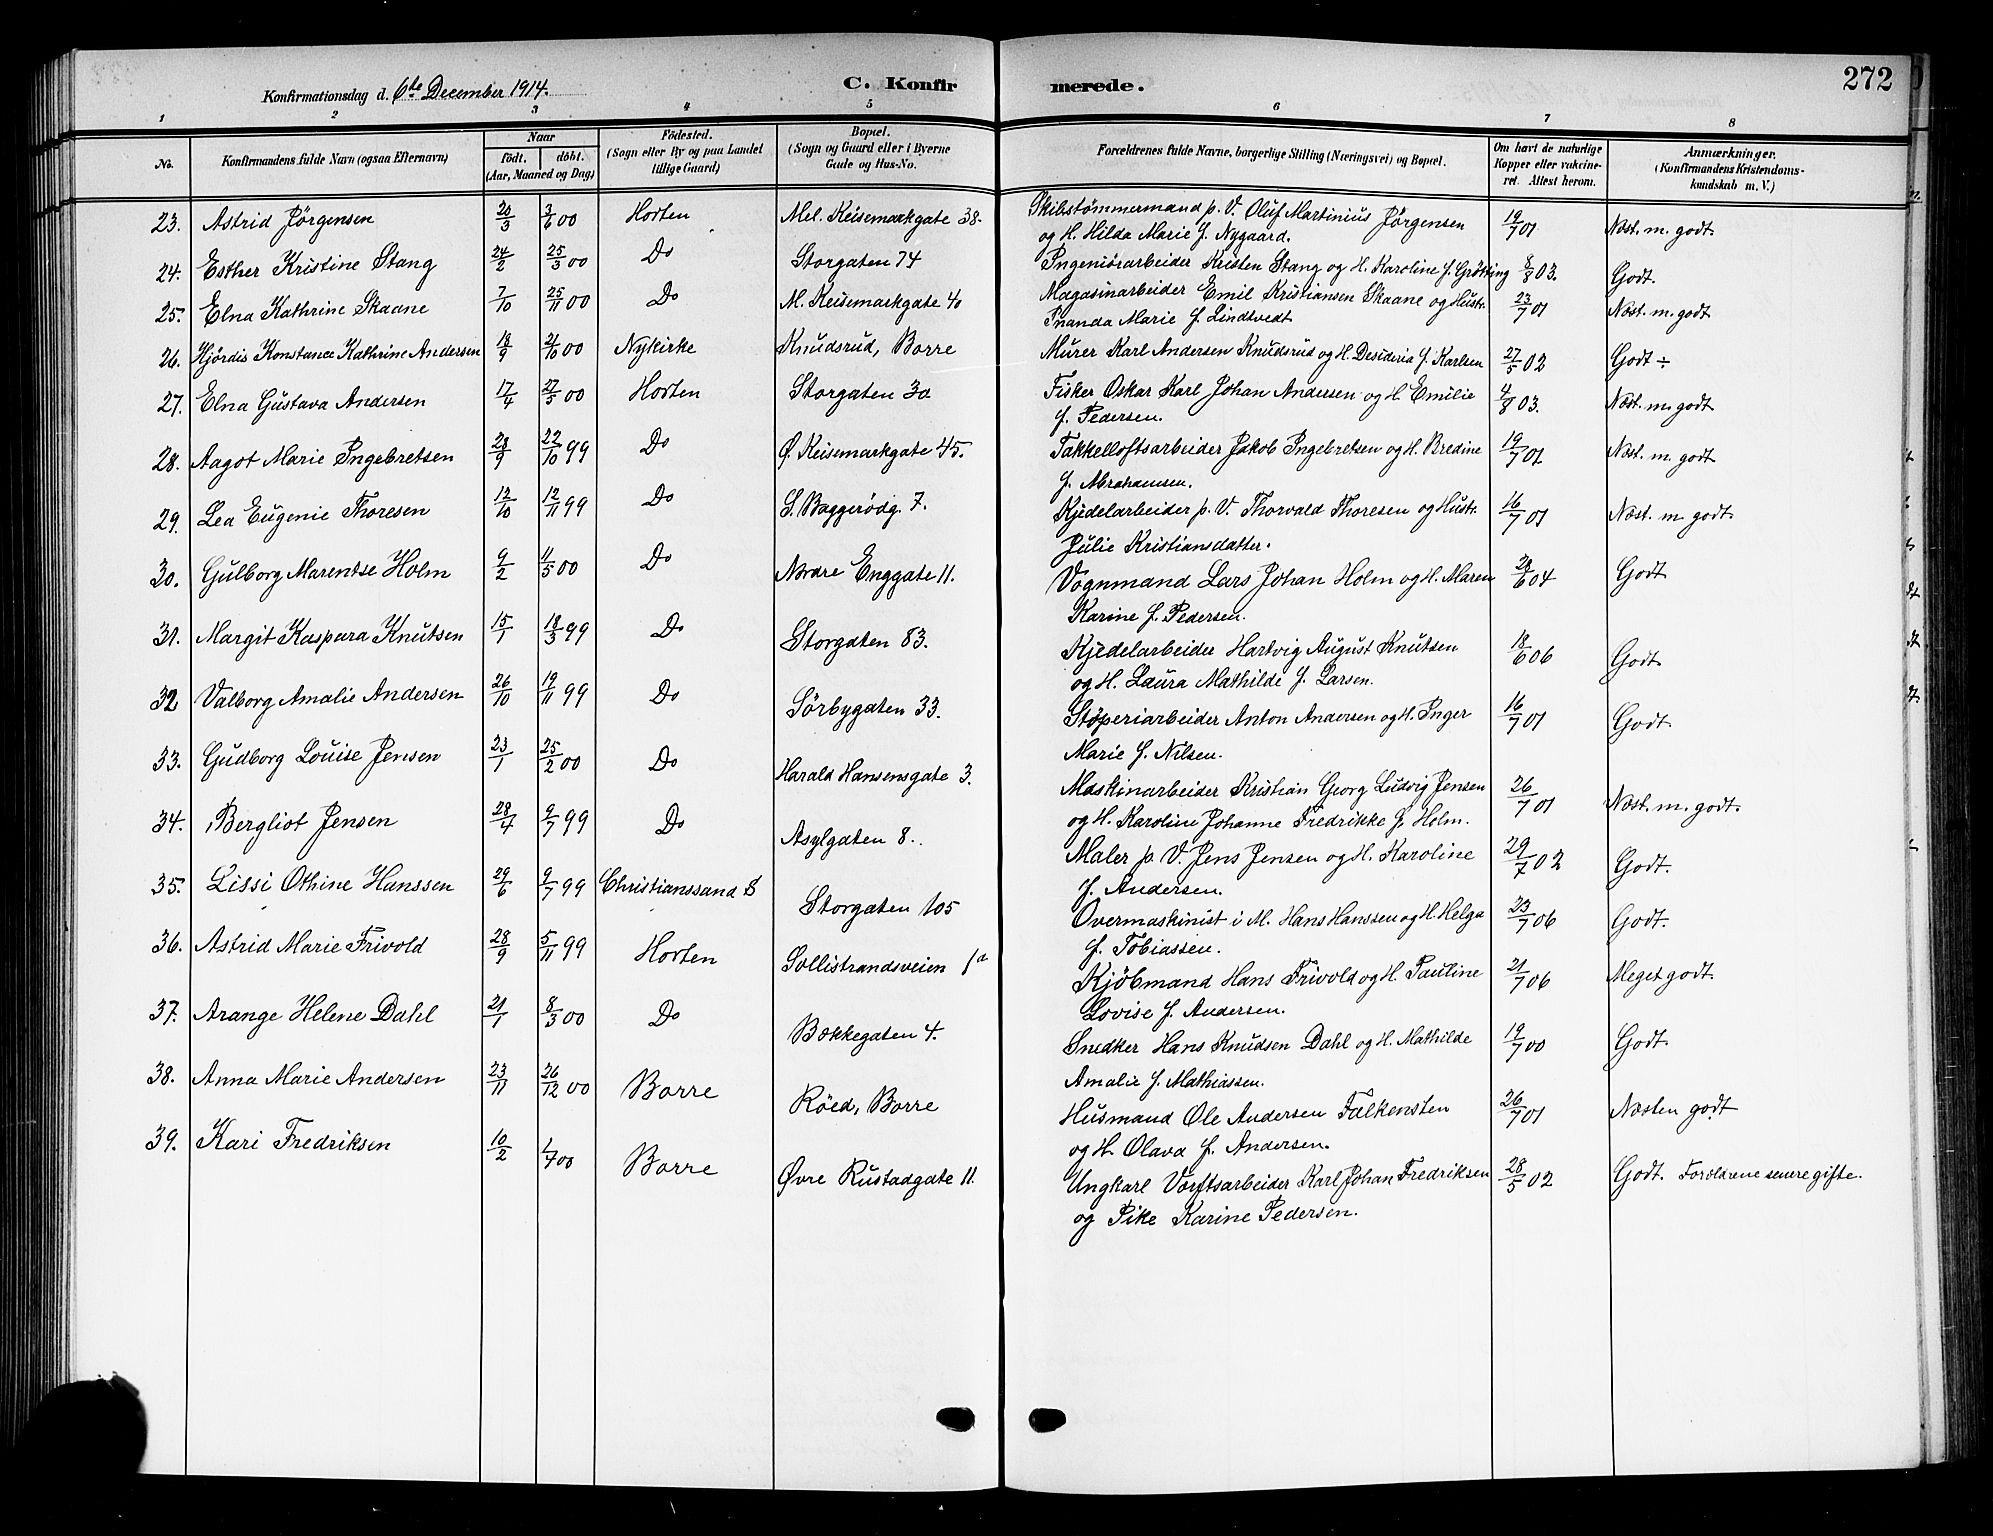 Konfirmationsdag d. 6te December 1914. C. Konfir merede. 272
1 2 3 4 5 6 7 8
No. Konfirmandens fulde Navn (ogsaa Efternavn) Naar født. døbt. (Aar, Maaned og Dag) Fødested. (Sogn eller By og paa Landet tillige Gaard) Bopæl. (Sogn og Gaard eller i Byerne Gade og Hus-No. Forældrenes fulde Navne, borgerlige Stilling (Næringsvei) og Bopæl. Om havt de naturlige Kopper eller vakcineret. Attest herom. Anmærkninger. (Konfirmandens Kristendomskundskab m. V.)
23. Astrid Jørgensen 20/3 3/6 00 Horten Mel. Keisemarkgate 38. Skibstømmermand p. V. Oluf Martinius Jørgensen 19/7 01 Næst. m. godt.
og H. Hilda Marie f. Nygaard.
24. Esther Kristine Stang 24/2 25/3 00 Do Storgaten 74 Ingeniørarbeider Kristen Stang og H. Karoline f. Grøtting 8/8 03. Godt.
25. Elna Kathrine Skaane 7/10 25/11 00 Do M. Keisemarkgate 40 Magasinarbeider Emil Kristiansen Skaane og Hustr. 23/7 01 Næst. m. godt
Inanda Marie f. Lindtvedt
26. Hjördis Konstance Kathrine Andersen 18/9 21/10 00 Nykirke Knudsrud, Borre Murer Karl Andersen Knudsrud og H. Desideria f. Karlsen 27/5 02 Godt ÷
27. Elna Gustava Andersen 17/4 27/5 00 Horten Storgaten 30 Fisker Oskar Karl Johan Andersen og H. Emilie 4/8 03. Næst. m. godt
f. Pedersen.
28. Aagot Marie Ingebretsen 23/9 22/10 99 Do Ø. Keisemarkgate 45. Takkelloftsarbeider Jakob Ingebretsen og H. Bredine 19/7 01 Næst. m. godt
f. Abrahamsen.
29. Lea Eugenie Thoresen 12/10 12/11 99 Do S. Baggerödg. 7. Kjedelarbeider p. V. Thorvald Thoresen og Hustr. 16/7 01 Næst. m. godt.
Julie Kristiansdatter.
30. Gulborg Marentse Holm 9/2 4/5 00 Do Nordre Enggate 11. Vognmand Lars Johan Holm og H. Maren 28/6 04 Godt
Karine f. Pedersen.
31. Margit Kaspara Knutsen 15/1 18/3 99 Do Storgaten 83. Kjedelarbeider Hartvig August Knutsen 18/6 06 Godt.
og H. Laura Mathilde f. Larsen.
32 Valborg Amalie Andersen 26/10 19/11 99 Do Sörbygaten 33. Støperiarbeider Anton Andersen og H. Inger 16/7 01 Godt.
Marie f. Nilsen.
33. Gudborg Louise Jensen 23/1 25/2 00 Do Harald Hansensgate 3. Maskinarbeider Kristian Georg Ludvig Jensen 26/7 01 Næst. m. godt.
og H. Karoline Johanne Fredrikke f. Holm.
34. Bergliot Jensen 28/4 9/7 99 Do Asylgaten 8. Maler p. V. Jens Jensen og H. Karoline 29/7 02 Godt.
f. Andersen.
35. Lissi Othine Hanssen 29/6 9/7 99 Christianssand S Storgaten 105 Overmaskinist i M. Hans Hanssen og H. Helga 23/7 06 Godt.
f. Tobiassen.
36. Astrid Marie Frivold 28/9 5/11 99 Horten Sollistrandsveien 1a Kjöbmand Hans Frivold og H. Pauline 21/7 06 Meget godt.
Lovise f. Andersen.
37. Arange Helene Dahl 21/1 8/3 00 Do Bækkegaten 4. Snedker Hans Knudsen Dahl og H. Mathilde 19/7 00 Godt.
Amalie f. Mathiassen.
38. Anna Marie Andersen 23/11 26/12 00 Borre Röed, Borre Husmand Ole Andersen Falkensten 26/7 01 Næsten godt
og H. Olava f. Andersen.
39. Kari Fredriksen 10/2 1/4 00 Borre Øvre Rustadgate 11. Ungkarl Værftsarbeider Karl Johan Fredriksen 28/5 02 Godt. Forældrene senere gifte.
og Pike Karine Pedersen.